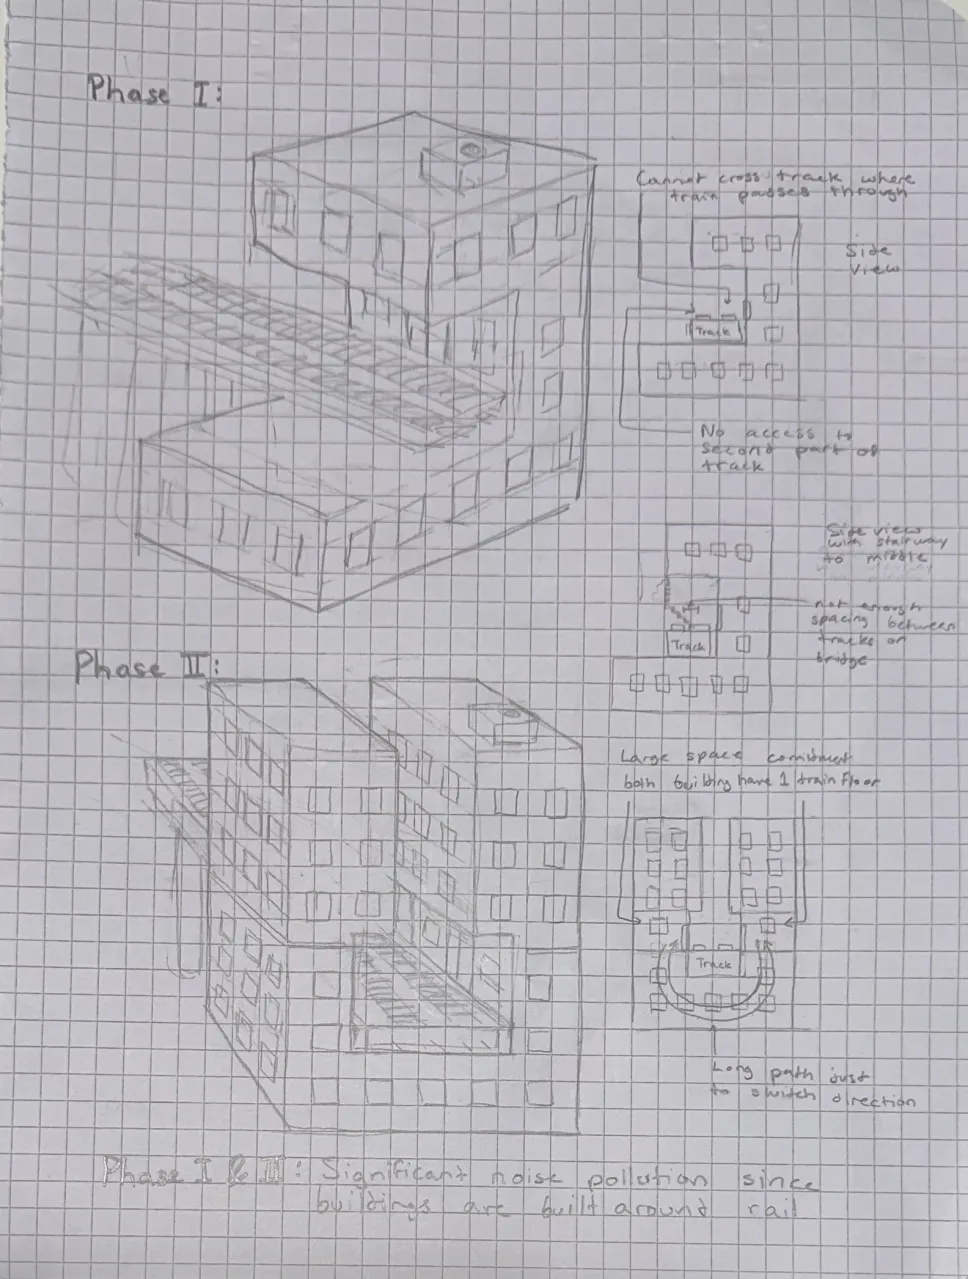 Phase I:
Cannot cross track where
train passes through
Side
View
Track
No access to
second part of
track
Side view
with stairway
to middle
not enough
spacing between
tracks on
bridge
Track
Phase II:
Large space comitment
both building have 1 train floor
Track
Long path just
to switch direction
Phase I & II: Significant noise pollution since
buildings are built around rail